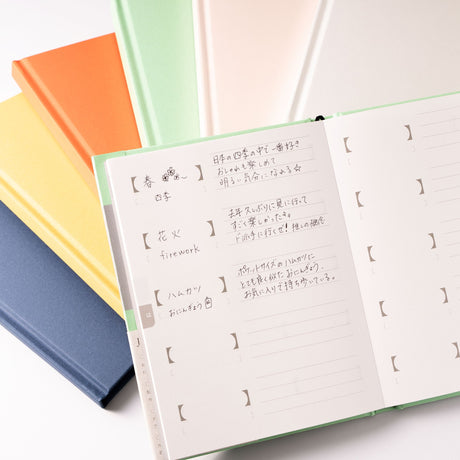 春
四季
日本の四季の中で一番好き
おしゃれも楽しめて
明るい気分になれる☆
花火
firework
去年久しぶりに見に行って
すごく楽しかった。
行くぜ!
ハムカツ
おにんぎょう
ポケットサイズのハムカツに
とても良く似たおにんぎょう。
お気に入りで持ち歩いている。
は
J